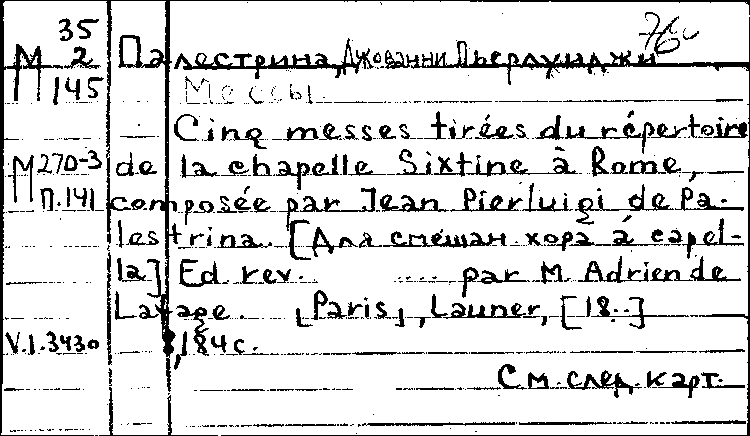 35
М 2 Палестрина, Джованни Пьерлуиджи
145 Мессы.
Cinq messes tirées du répertoire
М270-3 de la chapelle Sixtine à Rome,
П.141 composée par Jean Pierluigi de Pa-
lestrina. [Для смешан. хора a capel-
la] Ed. rev. .... par M. Adrien de
Lafage. [Paris], Launer, [18..]
V.1.3430 8,184 с.
См. след. карт.